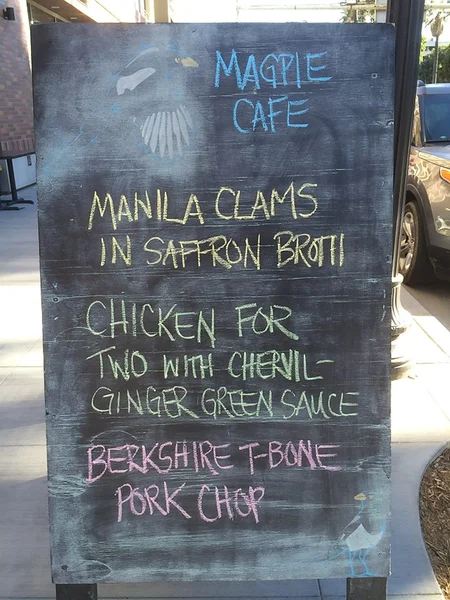 MAGPIE
CAFE
MANILA CLAMS
IN SAFFRON BROTH
CHICKEN FOR
TWO WITH CHERVIL-
GINGER GREEN SAUCE
BERKSHIRE T-BONE
PORK CHOP